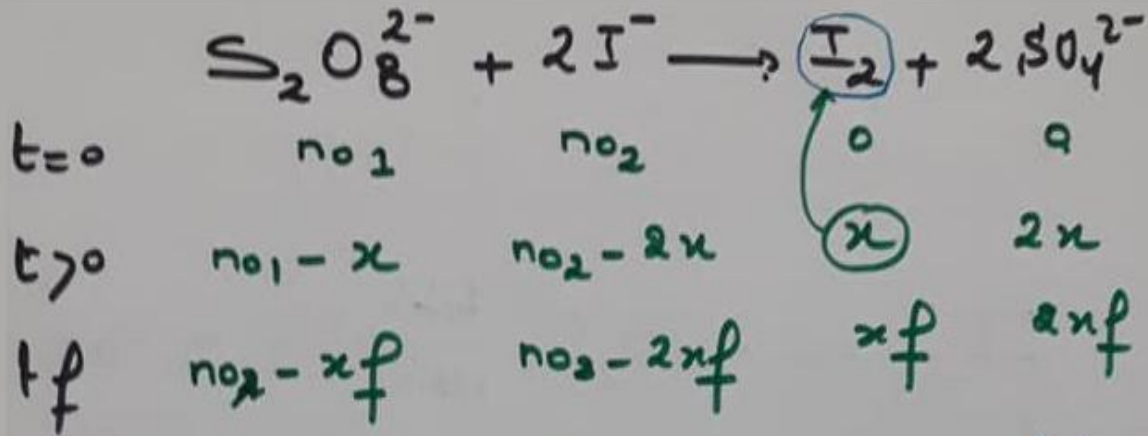 S₂O₈²⁻ + 2I⁻ → I₂ + 2SO₄²⁻
t=0 n₀₁ n₀₂ 0 0
t>0 n₀₁ - x n₀₂ - 2x x 2x
tf n₀₁ - xf n₀₂ - 2xf xf 2xf